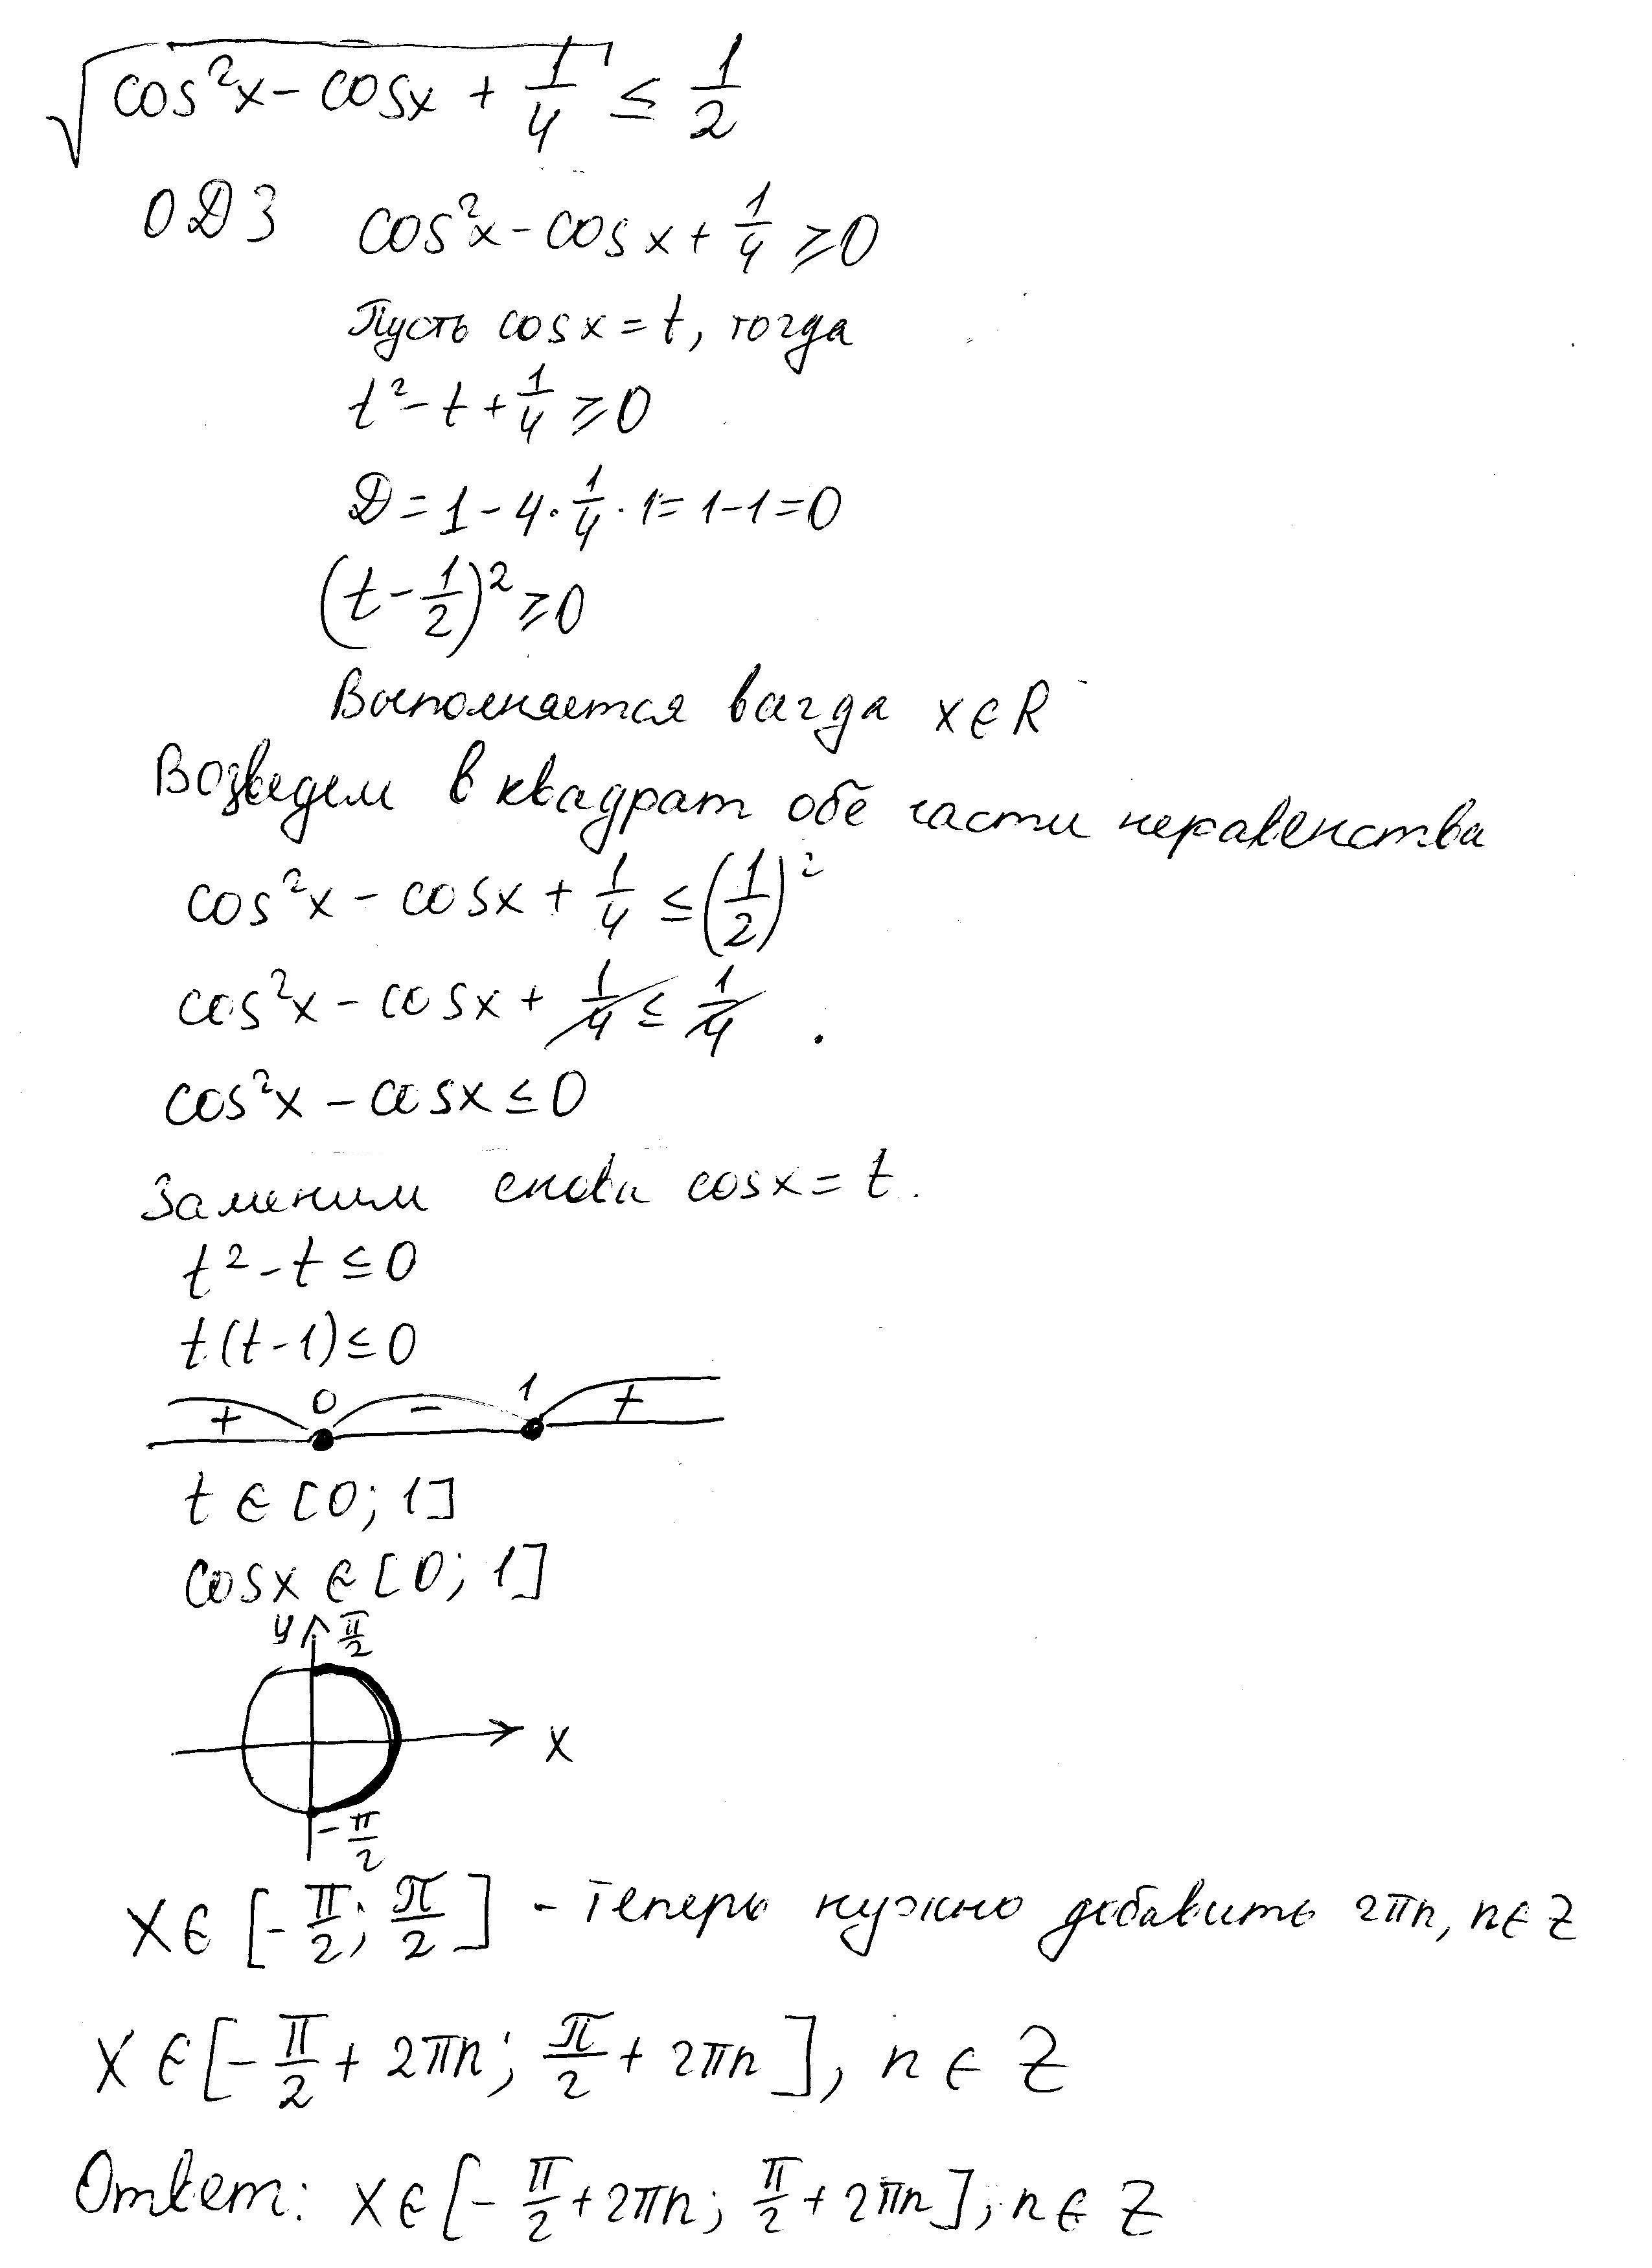 √(cos²x - cosx + 1/4) ≤ 1/2
ОДЗ cos²x - cosx + 1/4 ≥ 0
Пусть cosx = t, тогда
t² - t + 1/4 ≥ 0
D = 1 - 4 · 1/4 · 1 = 1 - 1 = 0
(t - 1/2)² ≥ 0
Выполняется всегда x ∈ R
Возведем в квадрат обе части неравенства
cos²x - cosx + 1/4 ≤ (1/2)²
cos²x - cosx + 1/4 ≤ 1/4
cos²x - cosx ≤ 0
Заменим снова cosx = t.
t² - t ≤ 0
t(t - 1) ≤ 0
+ 0 - 1 +
t ∈ [0; 1]
cosx ∈ [0; 1]
y π/2
x
-π/2
x ∈ [-π/2; π/2] - Теперь нужно добавить 2πn, n ∈ Z
x ∈ [-π/2 + 2πn; π/2 + 2πn], n ∈ Z
Ответ: x ∈ [-π/2 + 2πn; π/2 + 2πn], n ∈ Z